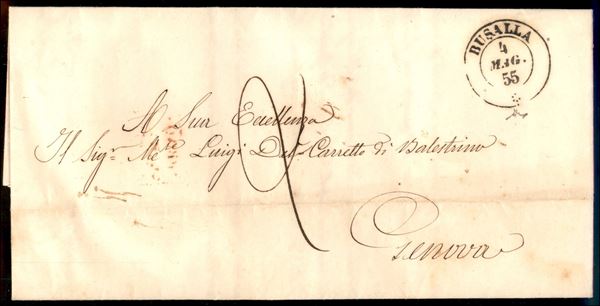 BUSALLA
4
MAG.
55
A Sua Eccellenza
Il Sigr. Mese Luigi Del Carretto di Balestrino
Genova